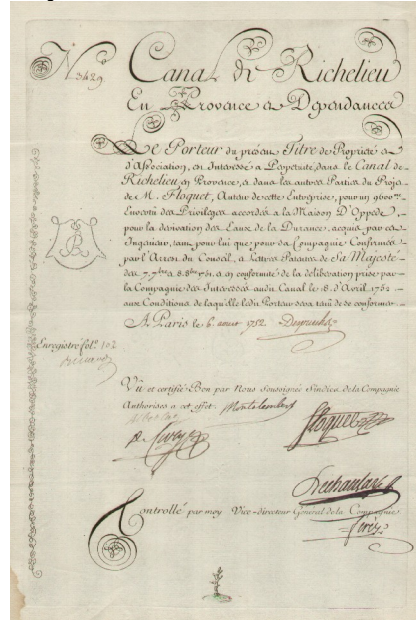 N.° 3429
Canal de Richelieu
En Provence et Dépendances
Le Porteur du présent Titre de Propriété et
d'Association, est Interessé a Perpetuité, dans le Canal de
Richelieu en Provence, et dans les autres Parties du Projet
de M. Floquet, Auteur de cette Entreprise, pour un 9600.me
En vertu des Privileges accordés a la Maison d'Oppede,
pour la derivation des Eaux de la Durance, acquis par cet
Ingenieur, tant pour lui que pour sa Compagnie Confirmés
par l'Arrest du Conseil, et Lettres Patentes de Sa Majesté
des 7. 7.bre et 8. 8.bre 1751. et en conformité de la déliberation prise par
la Compagnie des Interessés audit Canal le 18. d'Avril 1752
aux Conditions de laquelle ledit Porteur sera tenu de se conformer.
A Paris le 6. aoust 1752
Enregistré fol.° 102
Vû et certifié Bon par Nous Soussignés Sindics de la Compagnie
Authorisés a cet effet.
Floquet
Controllé par moy Vice-directeur General de la Compagnie